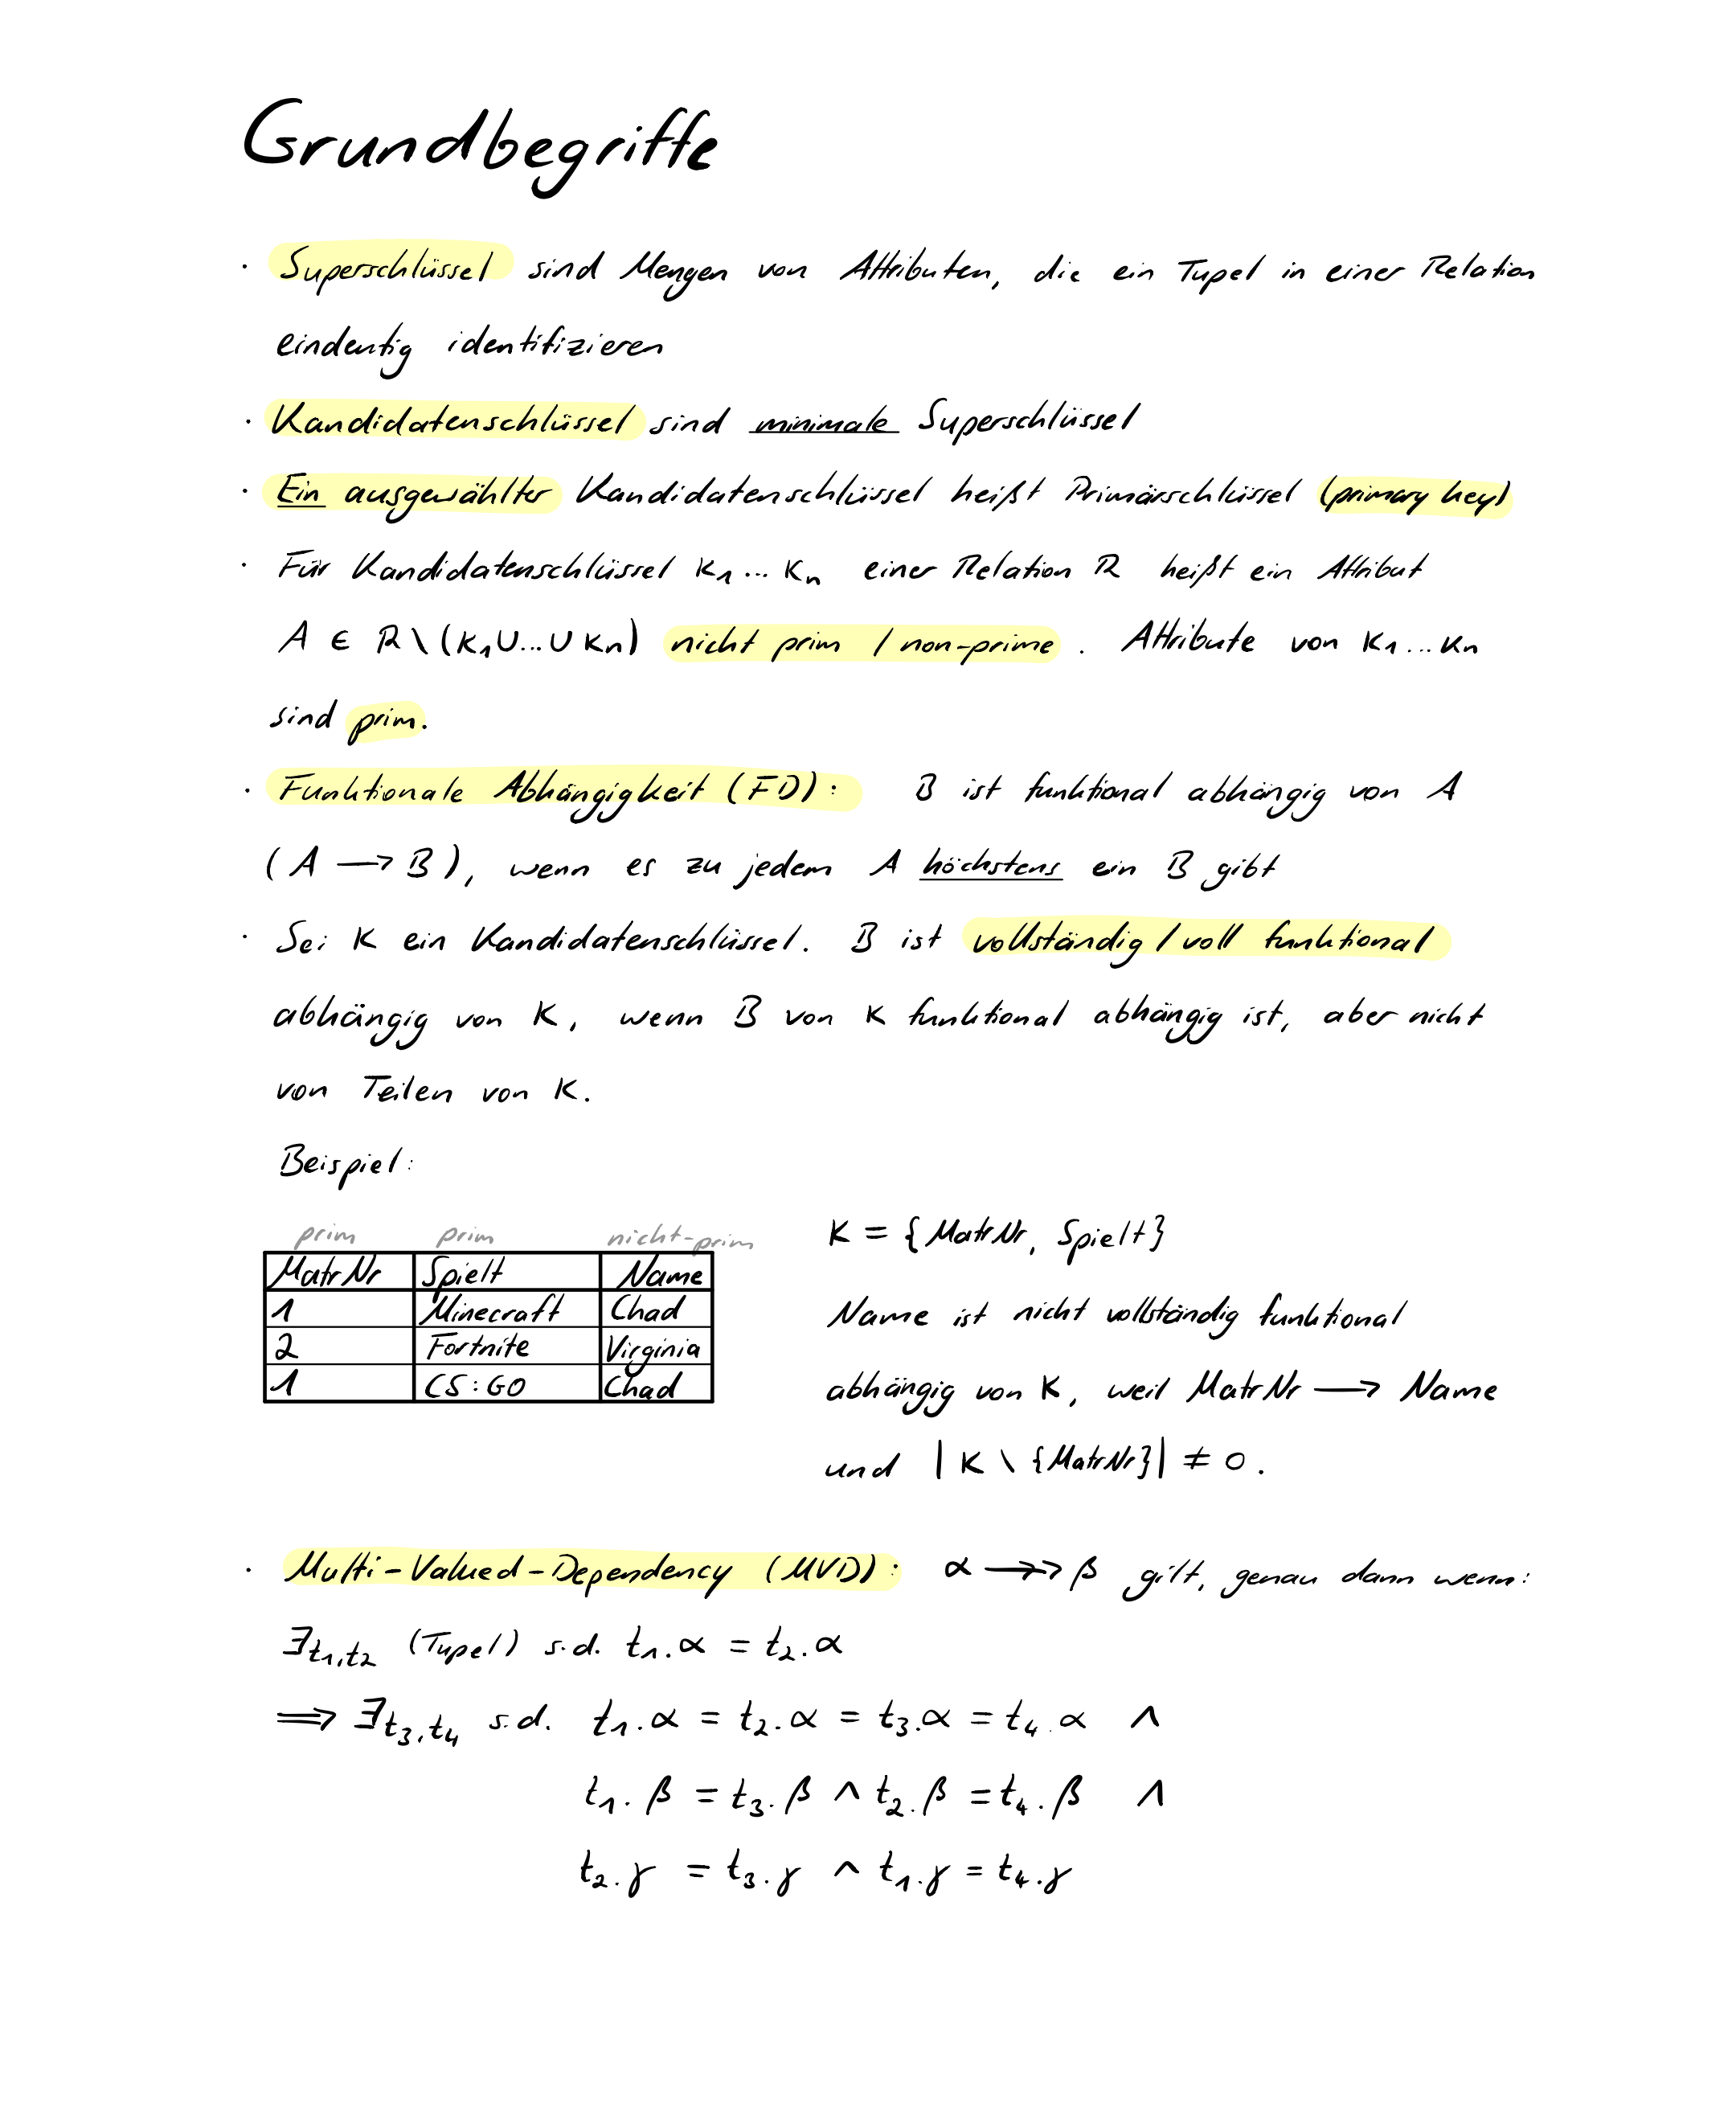 Grundbegriffe
· Superschlüssel sind Mengen von Attributen, die ein Tupel in einer Relation
eindeutig identifizieren
· Kandidatenschlüssel sind minimale Superschlüssel
· Ein ausgewählter Kandidatenschlüssel heißt Primärschlüssel (primary key)
· Für Kandidatenschlüssel K₁...Kₙ einer Relation R heißt ein Attribut
A ∈ R \ (K₁ ∪ ... ∪ Kₙ) nicht prim / non-prime. Attribute von K₁...Kₙ
sind prim.
· Funktionale Abhängigkeit (FD): B ist funktional abhängig von A
(A → B), wenn es zu jedem A höchstens ein B gibt
· Sei K ein Kandidatenschlüssel. B ist vollständig / voll funktional
abhängig von K, wenn B von K funktional abhängig ist, aber nicht
von Teilen von K.
Beispiel:
prim prim nicht-prim
MatrNr Spielt Name
1 Minecraft Chad
2 Fortnite Virginia
1 CS:GO Chad
K = {MatrNr, Spielt}
Name ist nicht vollständig funktional
abhängig von K, weil MatrNr → Name
und |K \ {MatrNr}| ≠ 0.
· Multi-Valued-Dependency (MVD): α ↠ β gilt, genau dann wenn:
∃t₁,t₂ (Tupel) s.d. t₁.α = t₂.α
⟹ ∃t₃,t₄ s.d. t₁.α = t₂.α = t₃.α = t₄.α ∧
t₁.β = t₃.β ∧ t₂.β = t₄.β ∧
t₂.γ = t₃.γ ∧ t₁.γ = t₄.γ